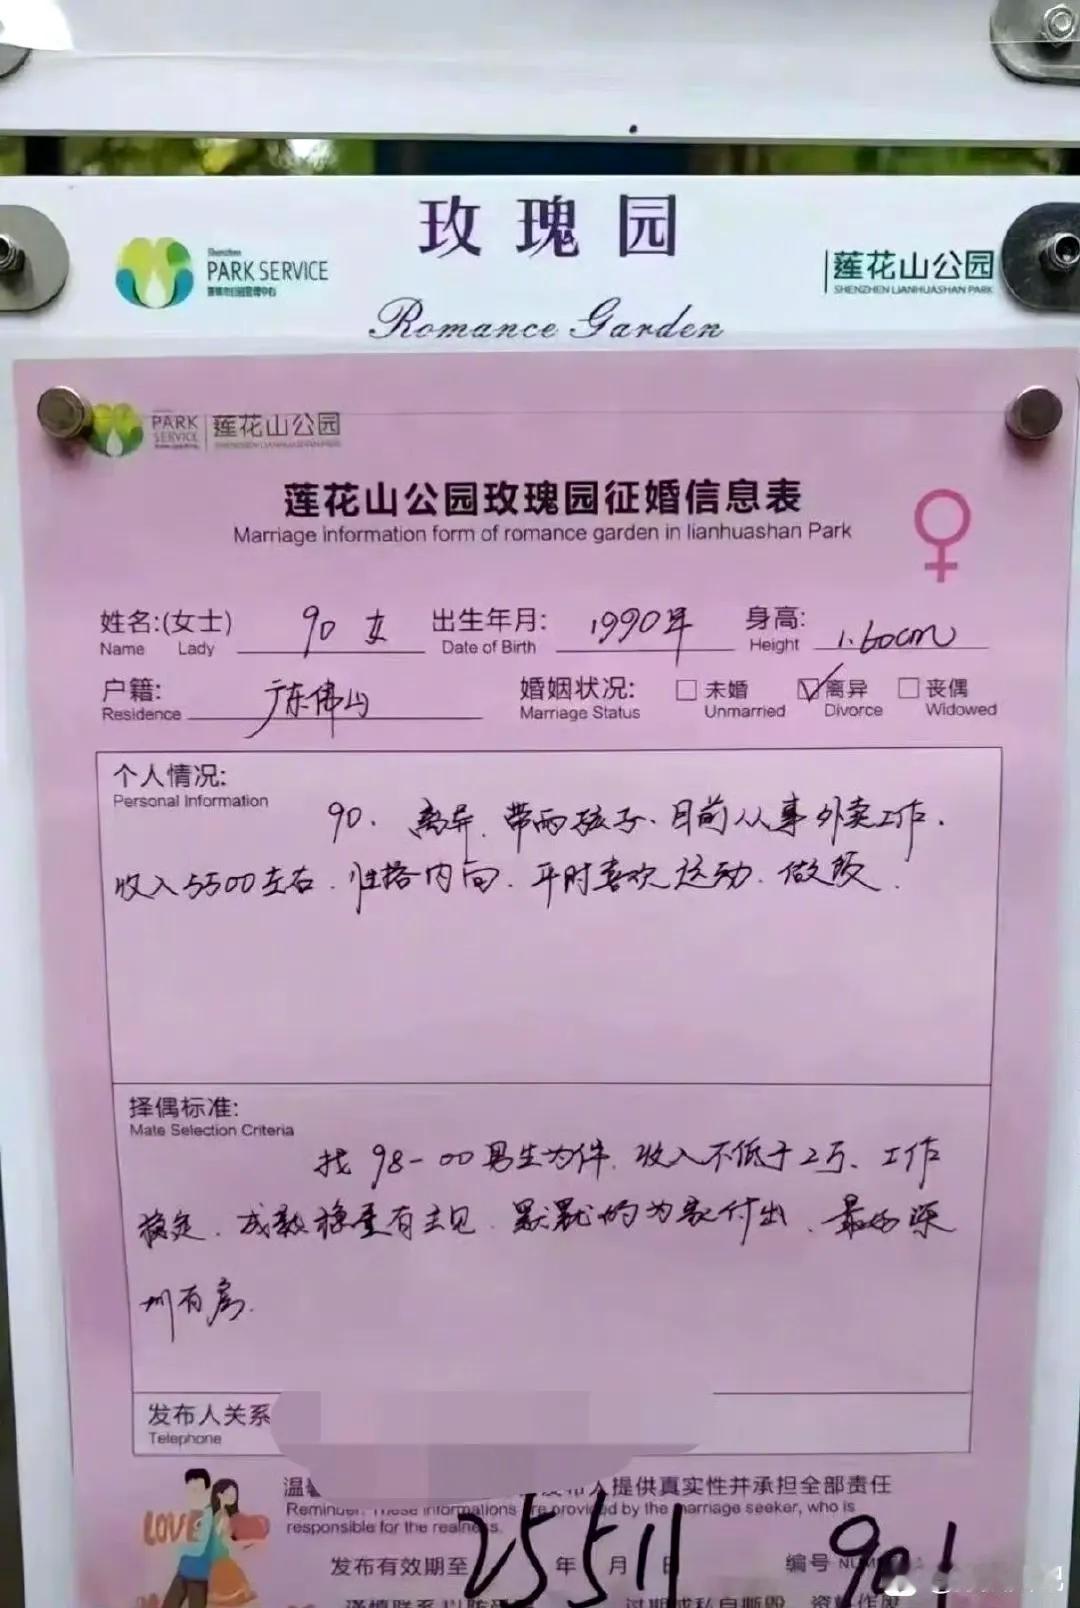 玫瑰园
Shenzhen
PARK SERVICE
莲花山公园
SHENZHEN LIANHUASHAN PARK
Romance Garden
PARK
SERVICE
莲花山公园
莲花山公园玫瑰园征婚信息表
Marriage information form of romance garden in lianhuashan Park
姓名:(女士) 90 女 出生年月: 1990年 身高: 1.60cm
Name Lady Date of Birth Height
户籍: 广东佛山 婚姻状况: 未婚 离异 丧偶
Residence Marriage Status Unmarried Divorce Widowed
个人情况:
Personal Information
90. 离异. 带两孩子. 目前从事外卖工作.
收入5500左右. 性格内向. 平时喜欢运动. 做饭.
择偶标准:
Mate Selection Criteria
找98-00男生为伴. 收入不低于2万、工作
稳定. 成熟稳重有主见. 默默的为家付出. 最好深
圳有房.
发布人关系
Telephone
温 人提供真实性并承担全部责任
Reminder: These informations are provided by the marriage seeker, who is
responsible for the realness.
LOVE
发布有效期至 25 年 5 月 11 日 编号 901